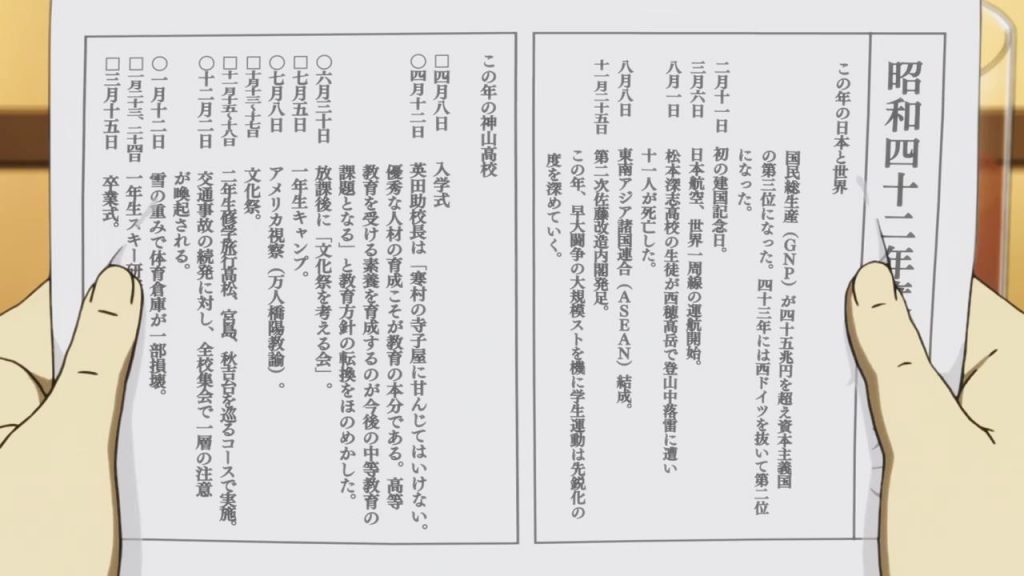 昭和四十二年
この年の日本と世界
国民総生産（GNP）が四十五兆円を超え資本主義国
の第三位になった。四十三年には西ドイツを抜いて第二位
になった。
二月十一日　初の建国記念日。
三月六日　日本航空、世界一周線の運航開始。
八月一日　松本深志高校の生徒が西穂高岳で登山中落雷に遭い
十一人が死亡した。
八月八日　東南アジア諸国連合（ASEAN）結成。
十一月二十五日　第二次佐藤改造内閣発足。
この年、早大闘争の大規模ストを機に学生運動は先鋭化の
度を深めていく。
この年の神山高校
□四月八日　入学式
○四月十二日　英田助校長は「寒村の寺子屋に甘んじてはいけない。
優秀な人材の育成こそが教育の本分である。高等
教育を受ける素養を育成するのが今後の中等教育の
課題となる」と教育方針の転換をほのめかした。
○六月三十日　放課後に「文化祭を考える会」。
□七月五日　一年生キャンプ。
○七月八日　アメリカ視察（万人橋陽教諭）。
□十月十三～十七日　文化祭。
□十一月十五～十八日　二年生修学旅行高松、宮島、秋吉台を巡るコースで実施。
○十二月二日　交通事故の続発に対し、全校集会で一層の注意
が喚起される。
○一月十二日　雪の重みで体育倉庫が一部損壊。
□一月二十三、二十四日　一年生スキー研
□三月十五日　卒業式。